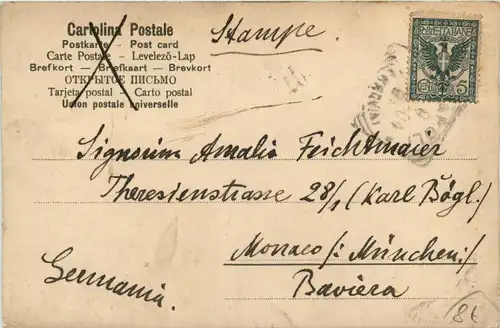 Cartolina Postale
Postkarte – Post card
Carte Postale – Levelező-Lap
Brefkort – Briefkaart – Brevkort
ОТКРЫТОЕ ПИСЬМО
Tarjeta postal – Carto postal
Union postale universelle
Stampe.
POSTE ITALIANE
5
Signorina Amalia Feichtmaier
Theresienstrasse 28/1 (Karl Bögl.)
Monaco /: München :/
Baviera
Germania.
86